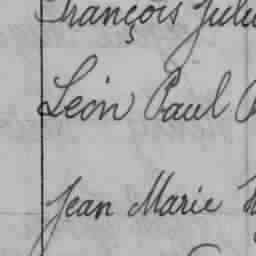 François
Léon Paul
Jean Marie